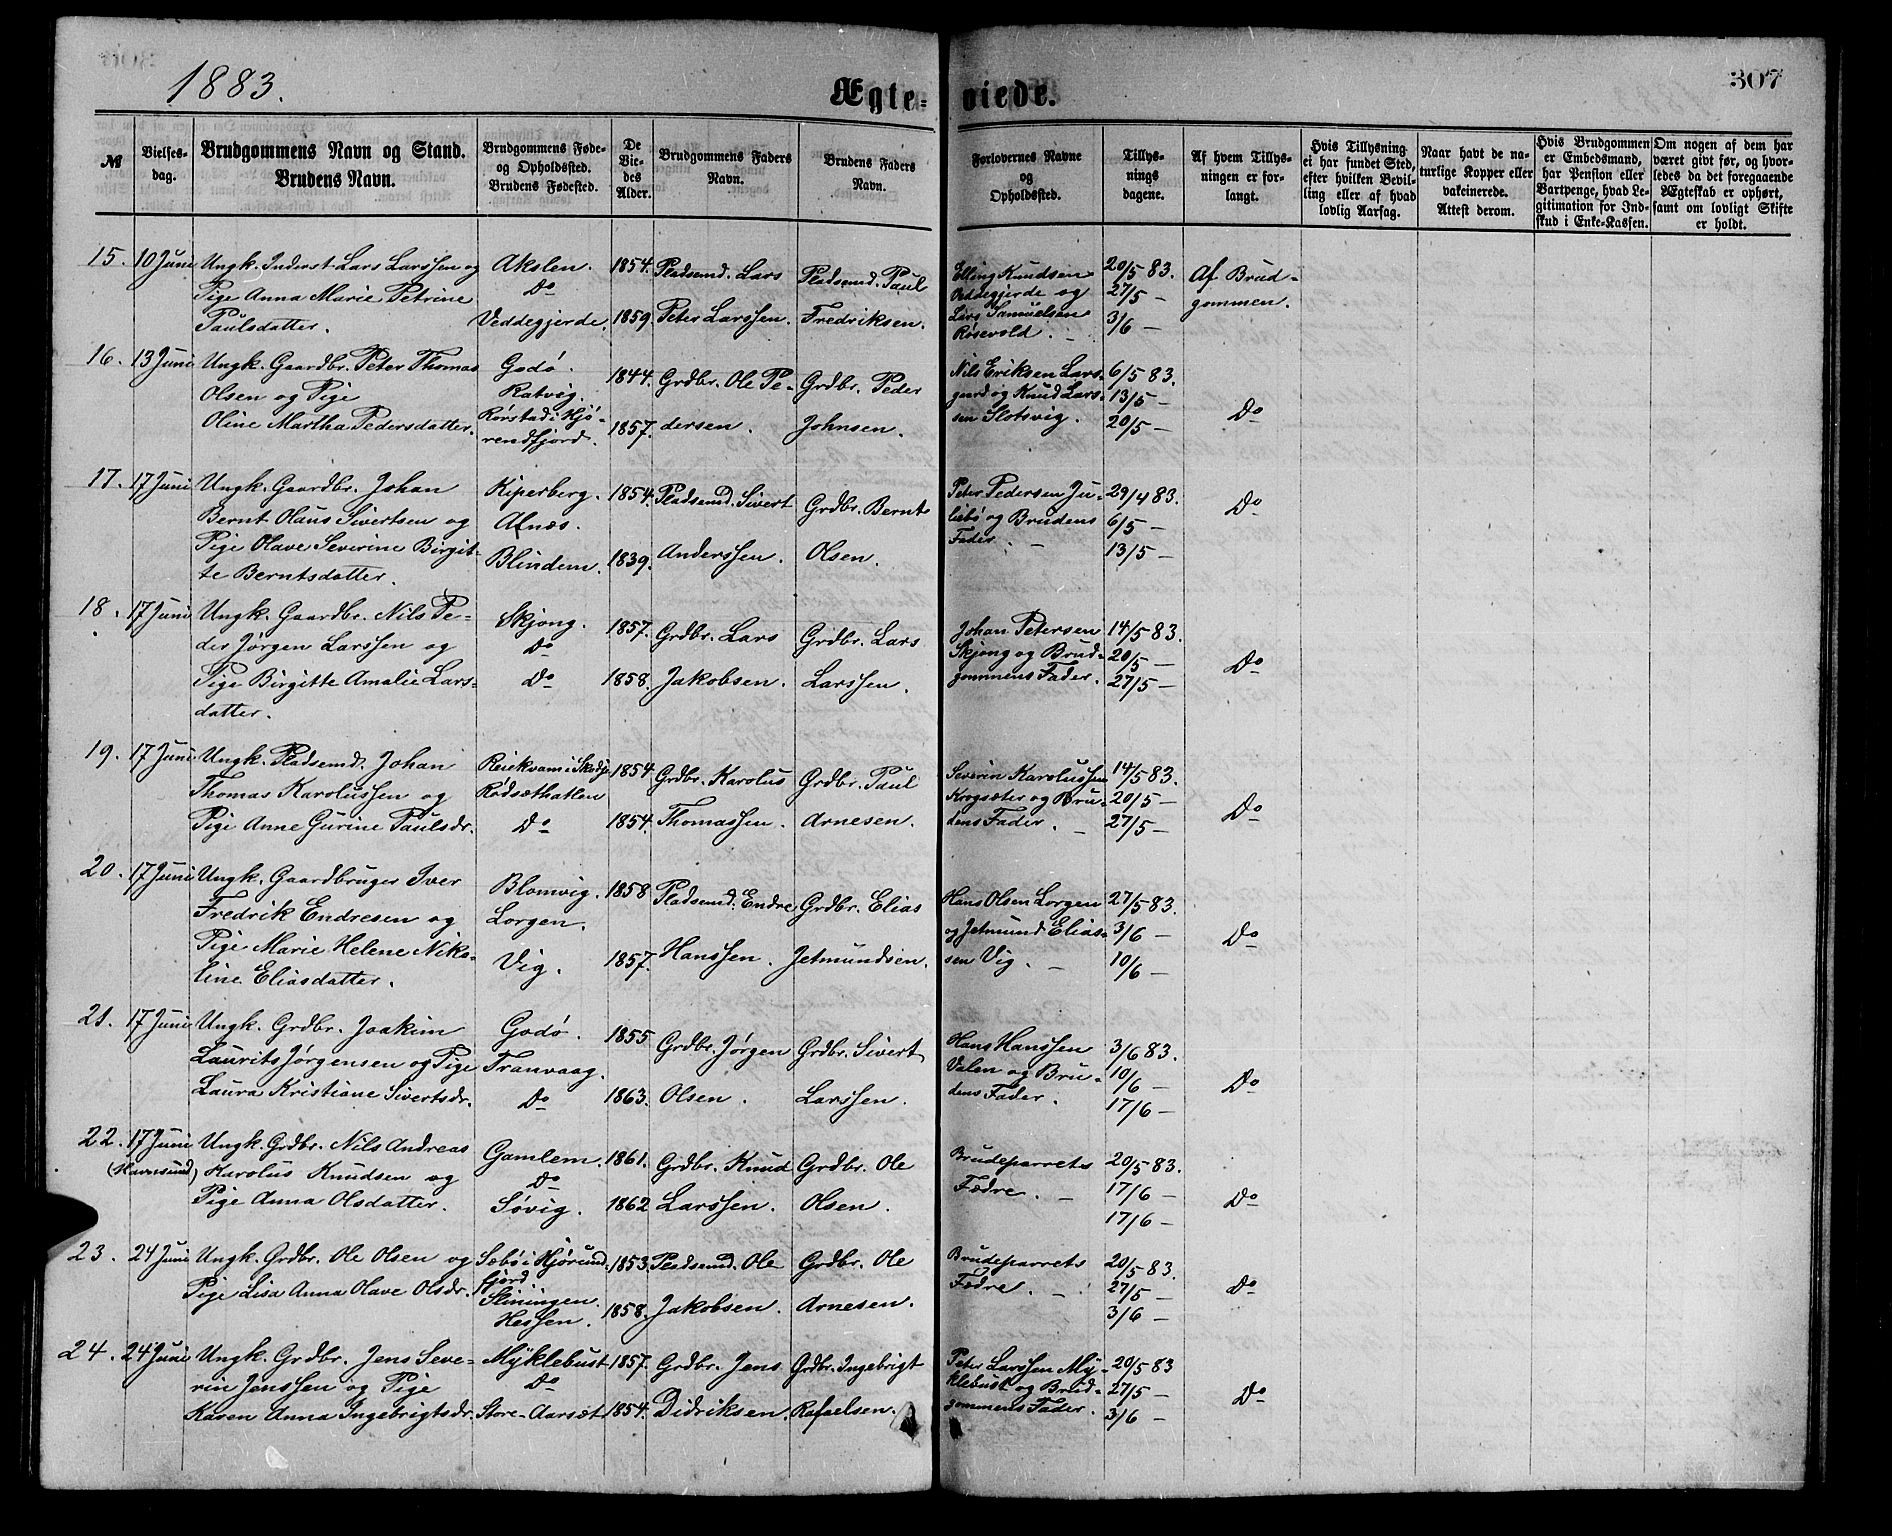 1883.
Ægte-viede.
307
№
Vielses-dag.
Brudgommens Navn og Stand.
Brudens Navn.
Brudgommens Føde-
og Opholdssted.
Brudens Fødested.
De
Vie-
des
Alder.
Brudgommens Faders
Navn.
Brudens Faders
Navn.
Forlovernes Navne
og
Opholdssted.
Tillys-
nings
dagene.
Af hvem Tillys-
ningen er for-
langt.
Hvis Tillysning
ei har fundet Sted,
efter hvilken Bevil-
ling eller af hvad
lovlig Aarsag.
Naar havt de na-
turlige Kopper eller
vakcinerede.
Attest derom.
Hvis Brudgommen
er Embedsmand,
har Pension eller
Vartpenge, hvad Le-
gitimation for Ind-
skud i Enke-Kassen.
Om nogen af dem har
været givt før, og hvor-
ledes da det foregaaende
Ægteskab er ophørt,
samt om lovligt Skifte
er holdt.
15. 10 Juni
Ungk. Inderst Lars Larssen og
Pige Anna Marie Petrine
Paulsdatter.
Akslen.
Do
Veddegjerde.
1854.
1859.
Pladsemd. Lars
Peter Larssen.
Pladsemd. Paul
Fredriksen.
Elling Knudsen
Veddegjerde og
Lars Samuelsen
Røsevold.
20/5 83.
27/5 —
3/6 —
Af Brud-
gommen.
16. 13 Juni
Ungk. Gaardbr. Peter Thomas
Olsen og Pige
Oline Martha Pedersdatter.
Godø.
Ratvig.
Rørstad i Hjø-
rendfjord.
1844.
1857.
Grdbr. Ole Pe-
dersen.
Grdbr. Peder
Johnsen.
Nils Eriksen Lars-
gaard og Knud Lars-
sen Slotsvig.
6/5 83.
13/5 —
20/5 —
Do
17. 17 Juni
Ungk. Gaardbr. Johan
Bernt Olaus Sivertsen og
Pige Olave Severine Birgit-
te Berntsdatter.
Kiperberg.
Alnæs.
Blindem.
1854.
1839.
Pladsemd. Sivert
Anderssen.
Grdbr. Bernt
Olsen.
Peter Pedersen Ju-
liebø og Brudens
Fader. —
29/4 83.
6/5 —
13/5 —
Do
18. 17 Juni
Ungk. Gaardbr. Nils Pe-
der Jørgen Larssen og
Pige Birgitte Amalie Lars-
datter.
Skjong.
Do
Do
1857.
1858.
Grdbr. Lars
Jakobsen.
Grdbr. Lars
Larssen.
Johan Petersen
Skjong og Brud-
gommens Fader.
14/5 83.
20/5 —
27/5 —
Do
19. 17 Juni
Ungk. Pladsemd. Johan
Thomas Karolussen og
Pige Anne Gurine Paulsdr.
Reiekvam i Skodje
Rødsæthatlen
Do
1854
1854.
Grdbr. Karolus
Thomassen.
Grdbr. Paul
Arnesen.
Severin Karolussen
Krogsæter og Bru-
dens Fader. —
14/5 83.
20/5 —
27/5 —
Do
20. 17 Juni
Ungk. Gaardbruger Iver
Fredrik Endresen og
Pige Marie Helene Niko-
line Eliasdatter.
Blomvig.
Lorgen.
Vig.
1858
1857.
Pladsemd. Endre
Hanssen.
Grdbr. Elias
Jetmundsen.
Hans Olsen Lorgen
og Jetmund Elias-
sen Vig. —
27/5 83.
3/6 —
10/6 —
Do
21. 17 Juni
Ungk. Grdbr. Joakim
Laurits Jørgensen og Pige
Laura Kristiane Sivertsdr.
Godø.
Tranvaag.
Do
1855
1863.
Grdbr. Jørgen
Olsen.
Grdbr. Sivert
Larssen.
Hans Hanssen
Valen og Bru-
dens Fader.
3/6 83.
10/6 —
17/6 —
Do
22. 17 Juni
(Havnsund)
Ungk. Grdbr. Nils Andreas
Karolus Knudsen og
Pige Anna Olsdatter.
Gamlem.
Do
Søvig.
1861.
1862
Grdbr. Knud
Larssen.
Grdbr. Ole
Olsen.
Brudeparrets
Fædre. —
20/5 83.
17/6 —
17/6 —
Do
23. 24 Juni
Ungk. Grdbr. Ole Olsen og
Pige Lisa Anna Olave Olsdr.
Sæbø i Hjørund-
fjord.
Sliningen.
Hessen.
1853.
1858.
Pladsemd. Ole
Jakobsen.
Grdbr. Ole
Arnesen.
Brudeparrets
Fædre. —
20/5 83.
27/5 —
3/6 —
Do
24. 24 Juni
Ungk. Grdbr. Jens Seve-
rin Jenssen og Pige
Karen Anna Ingebrigtsdr.
Myklebust
Do
Store-Aarsæt
1857.
1854.
Grdbr. Jens
Didriksen.
Grdbr. Ingebrigt
Rafaelsen.
Peter Larssen My-
klebust og Brud-
gommens Fader.
20/5 83
27/5 —
3/6 —
Do